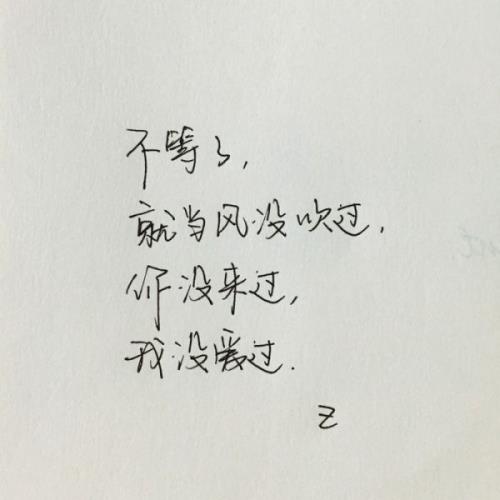 不等了,
就当风没吹过,
你没来过,
我没爱过.
z